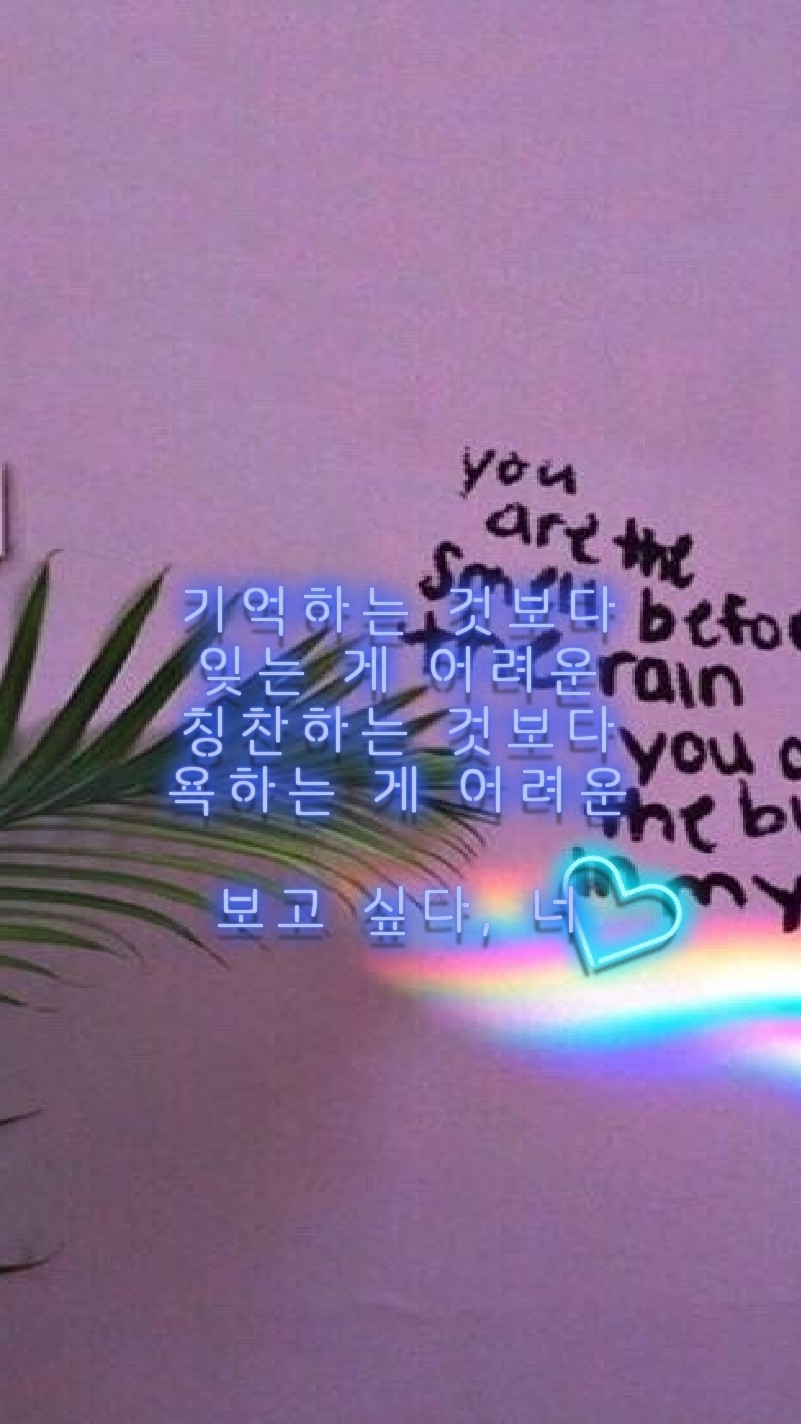 you
are the
smell before
the rain
you
the
my
기억하는 것보다
잊는 게 어려운
칭찬하는 것보다
욕하는 게 어려운
보고 싶다, 너